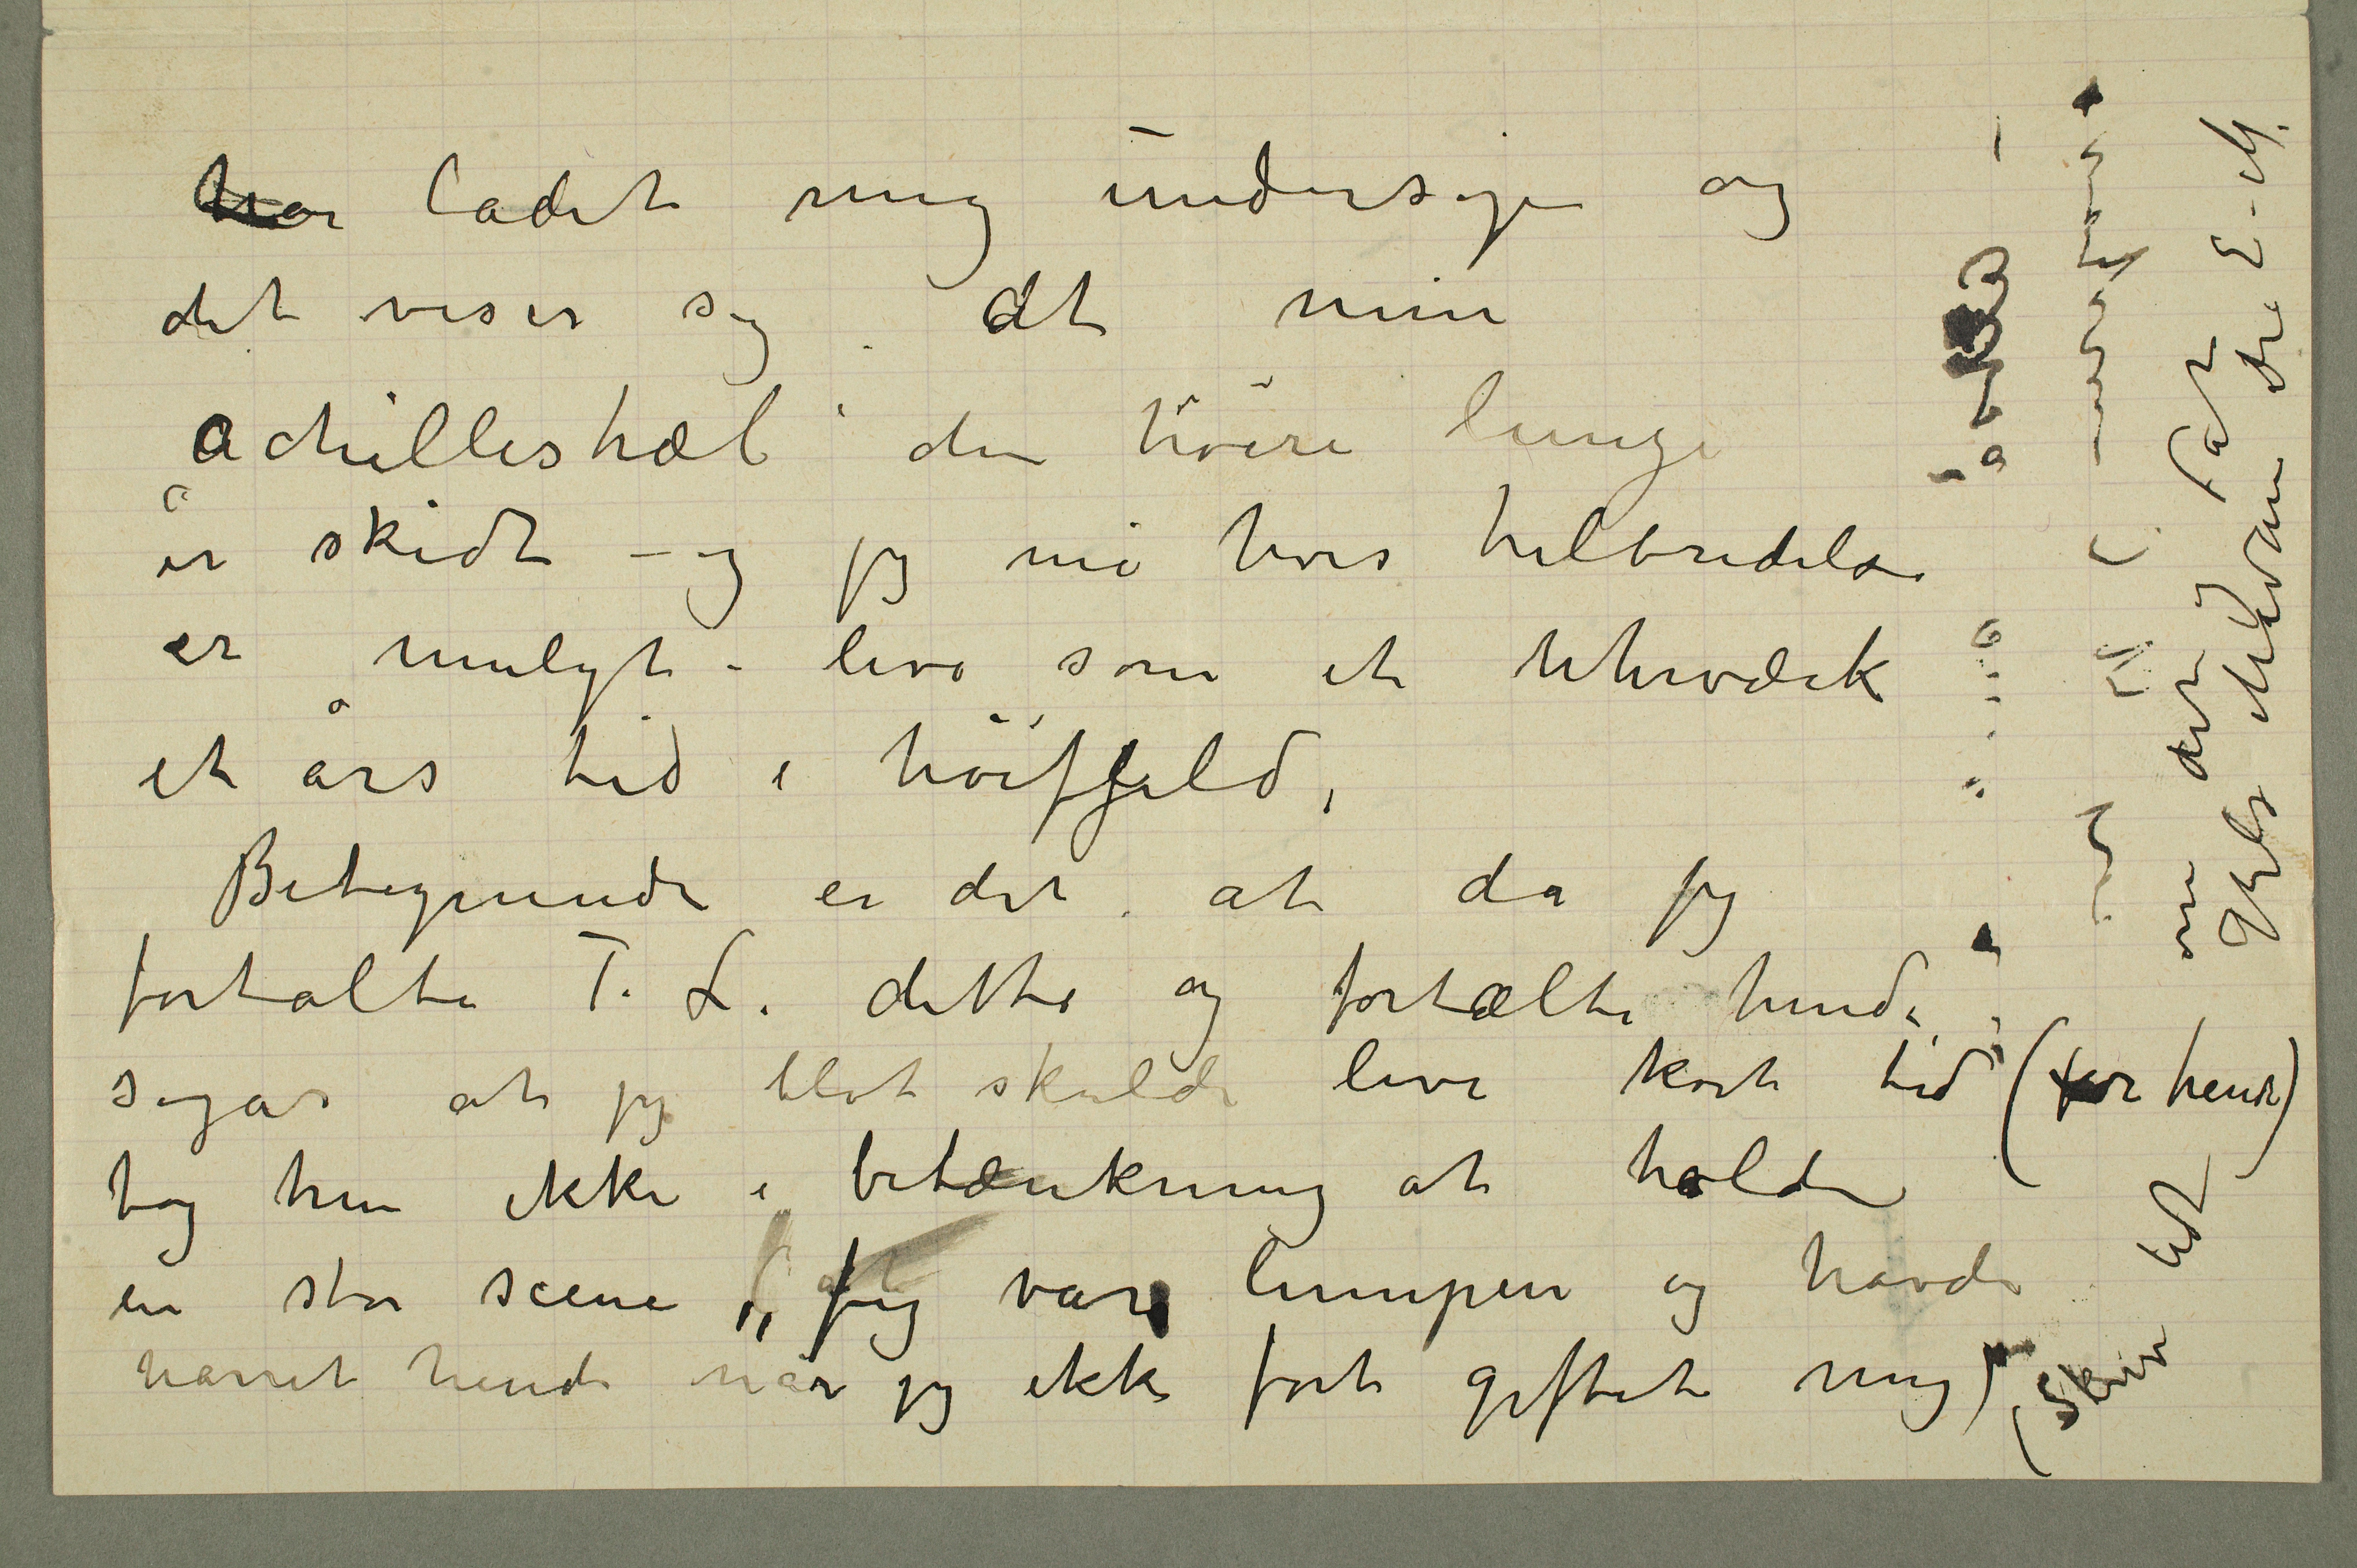 har ladet mig undersøge og
det viser sig at min
achilleshæl den høire lunge
er skidt – og jeg må hvis helbredelse
er muligt – leve som et uhrværk
et års tid i høiffjeld,
Betegnende er det at da jeg
fortalte T. L. dette og fortælte hende
sogar at jeg blot skulde leve kort tid
(for hende)
tog hun ikke i betænkning at holde
en stor scene „Jeg var lumpen og havde
narret hende når jeg ikke fort giftet mig)
(Skriv lidt
om det og
Hils din E. M.